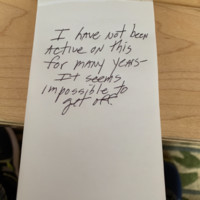 I have not been
Active on this
for many years-
It seems
impossible to
get off